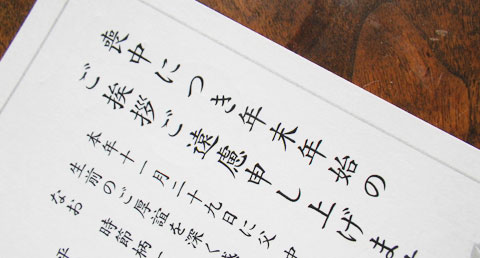 喪中につき年末年始の
ご挨拶ご遠慮申し上げま
本年十一月二十九日に父
生前のご厚誼を深く
なお 時節柄
平